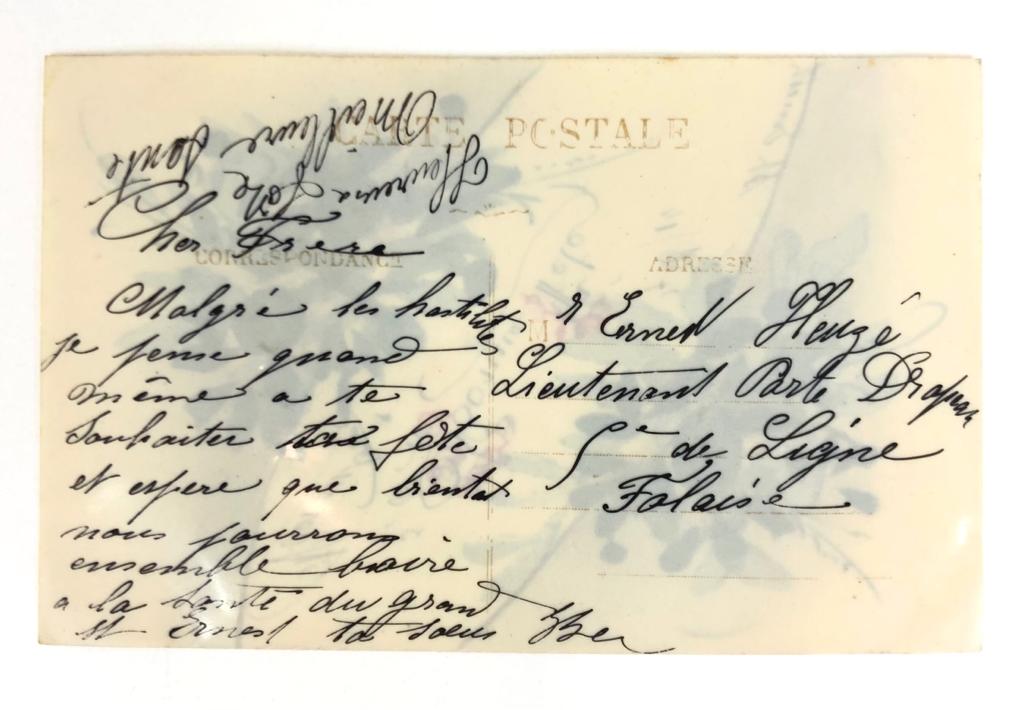 CARTE POSTALE
Heureuse Fête
Meilleure Sante
Cher Frere
CORRESPONDANCE
Malgré les hostilités
je pense quand
même a te
souhaiter ta fête
et espere que bientot
nous pourrons
ensemble boire
a la santé du grand
St Ernest ta soeur
ADRESSE
Mr Ernest Heuzé
Lieutenant Porte Drapeau
5e de Ligne
Falaise